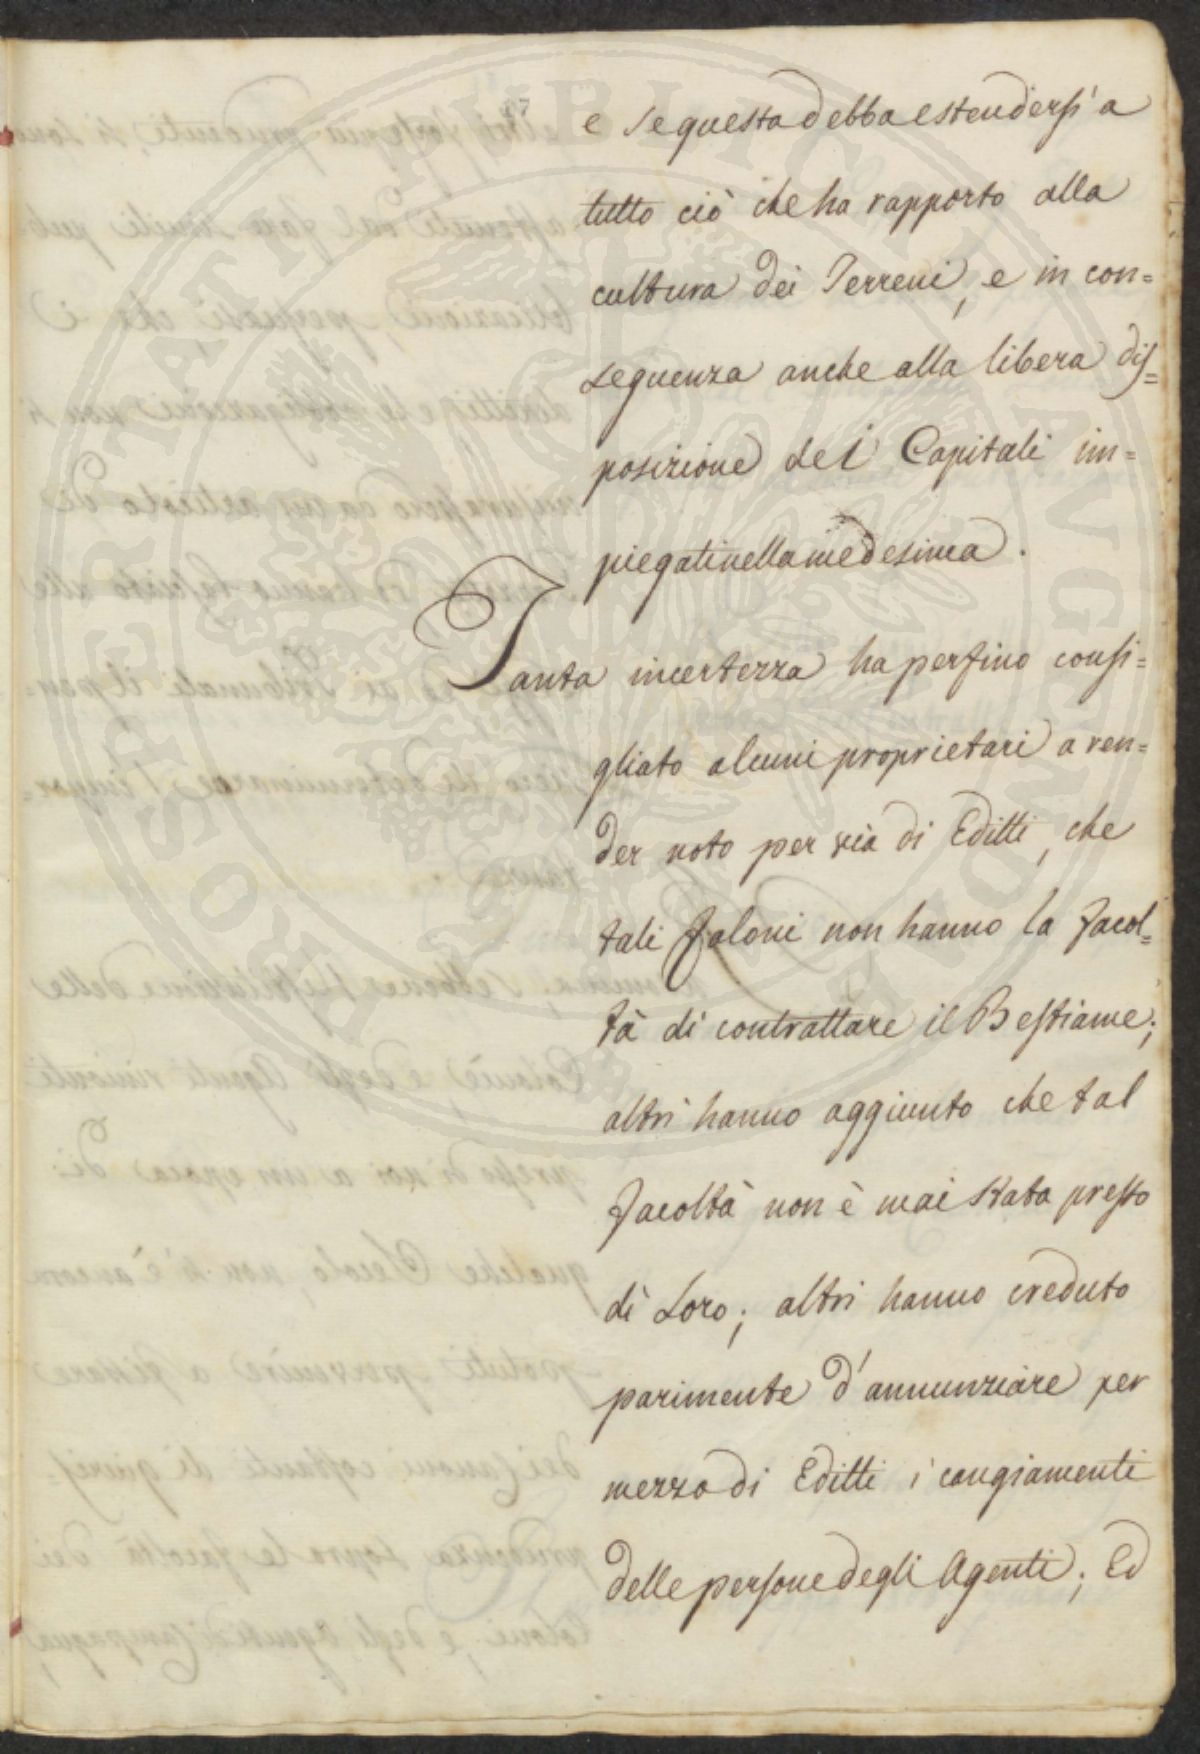 e se questa debba estendersi a
tutto ciò che ha rapporto alla
cultura dei Terreni, e in con=
seguenza anche alla libera dis=
posizione dei Capitali im=
piegati nella medesima.
Tanta incertezza ha perfino consi=
gliato alcuni proprietari a ren=
der noto per via di Editti, che
tali Coloni non hanno la facol=
tà di contrattare il Bestiame;
altri hanno aggiunto che tal
facoltà non è mai stata presso
di Loro; altri hanno creduto
parimente d'annunziare per
mezzo di Editti i cangiamenti
delle persone degli Agenti; Ed